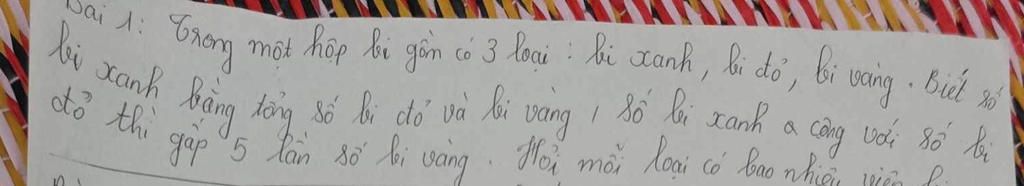 Bài 1: Trong một hộp bi gồm có 3 loại : bi xanh, bi đỏ, bi vàng. Biết số
bi xanh bằng tổng số bi đỏ và bi vàng, số bi xanh a cộng với số bi
đỏ thì gấp 5 lần số bi vàng. Hỏi mỗi loại có bao nhiêu viên